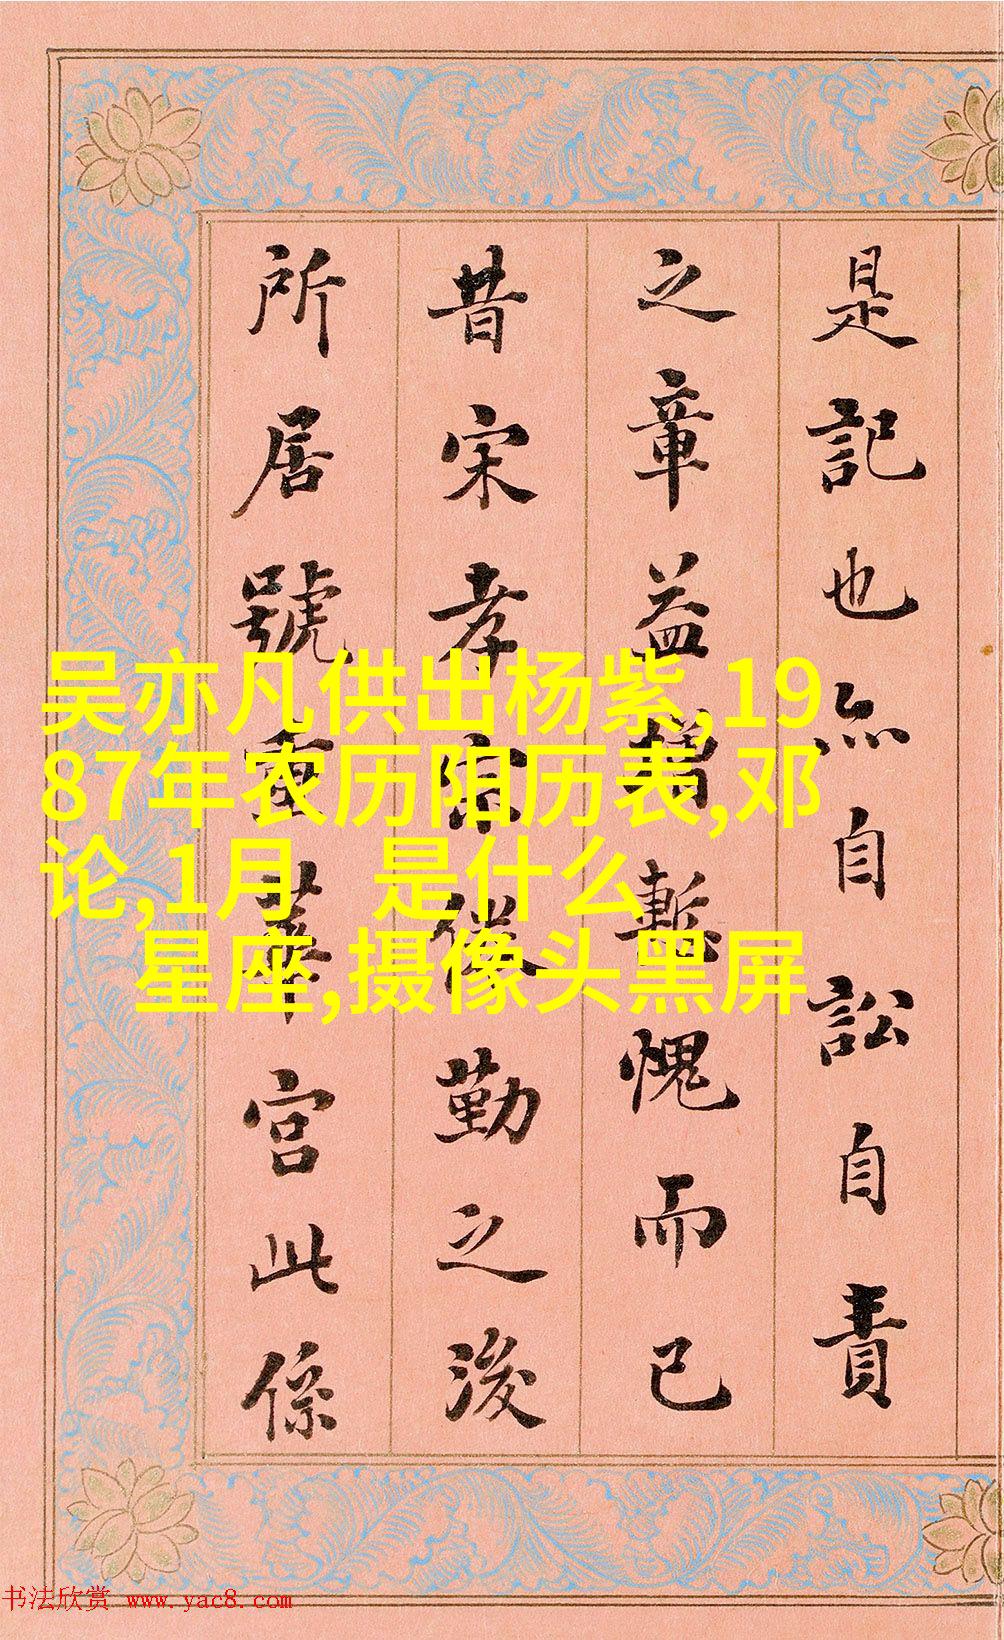 是記也亦自訟自責
之章益增慙愧而已
昔宋孝宗倦勤之後
所居號重華宮此係
吴亦凡供出杨紫,19
87年农历阳历表,邓
论,1月 是什么
星座,摄像头黑屏
书法欣赏 www.yac8.com